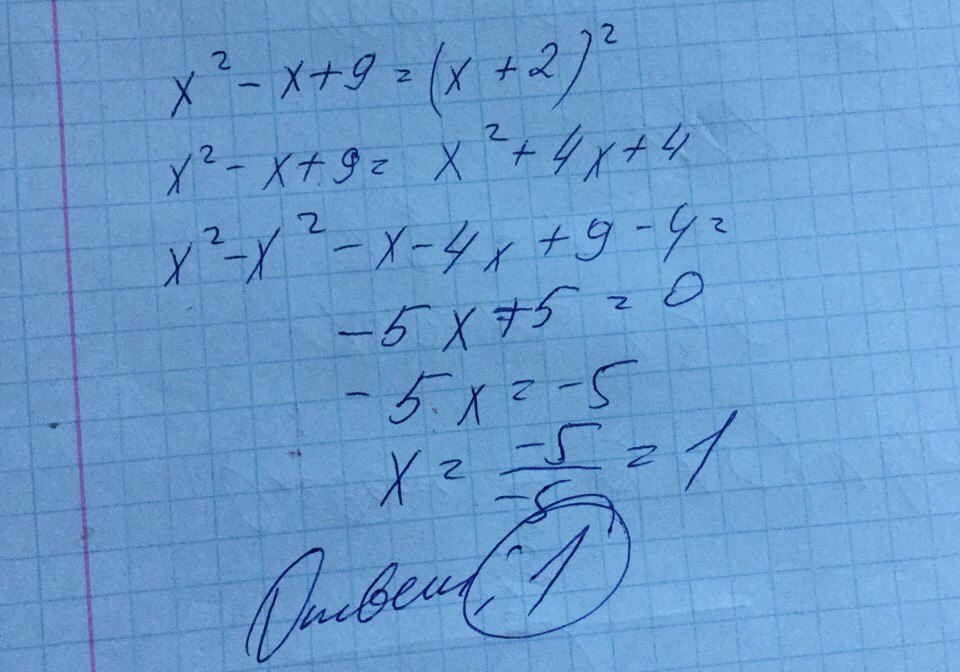 x² - x + 9 = (x + 2)²
x² - x + 9 = x² + 4x + 4
x² - x² - x - 4x + 9 - 4 =
-5x + 5 = 0
-5x = -5
x = -5/-5 = 1
Ответ: 1